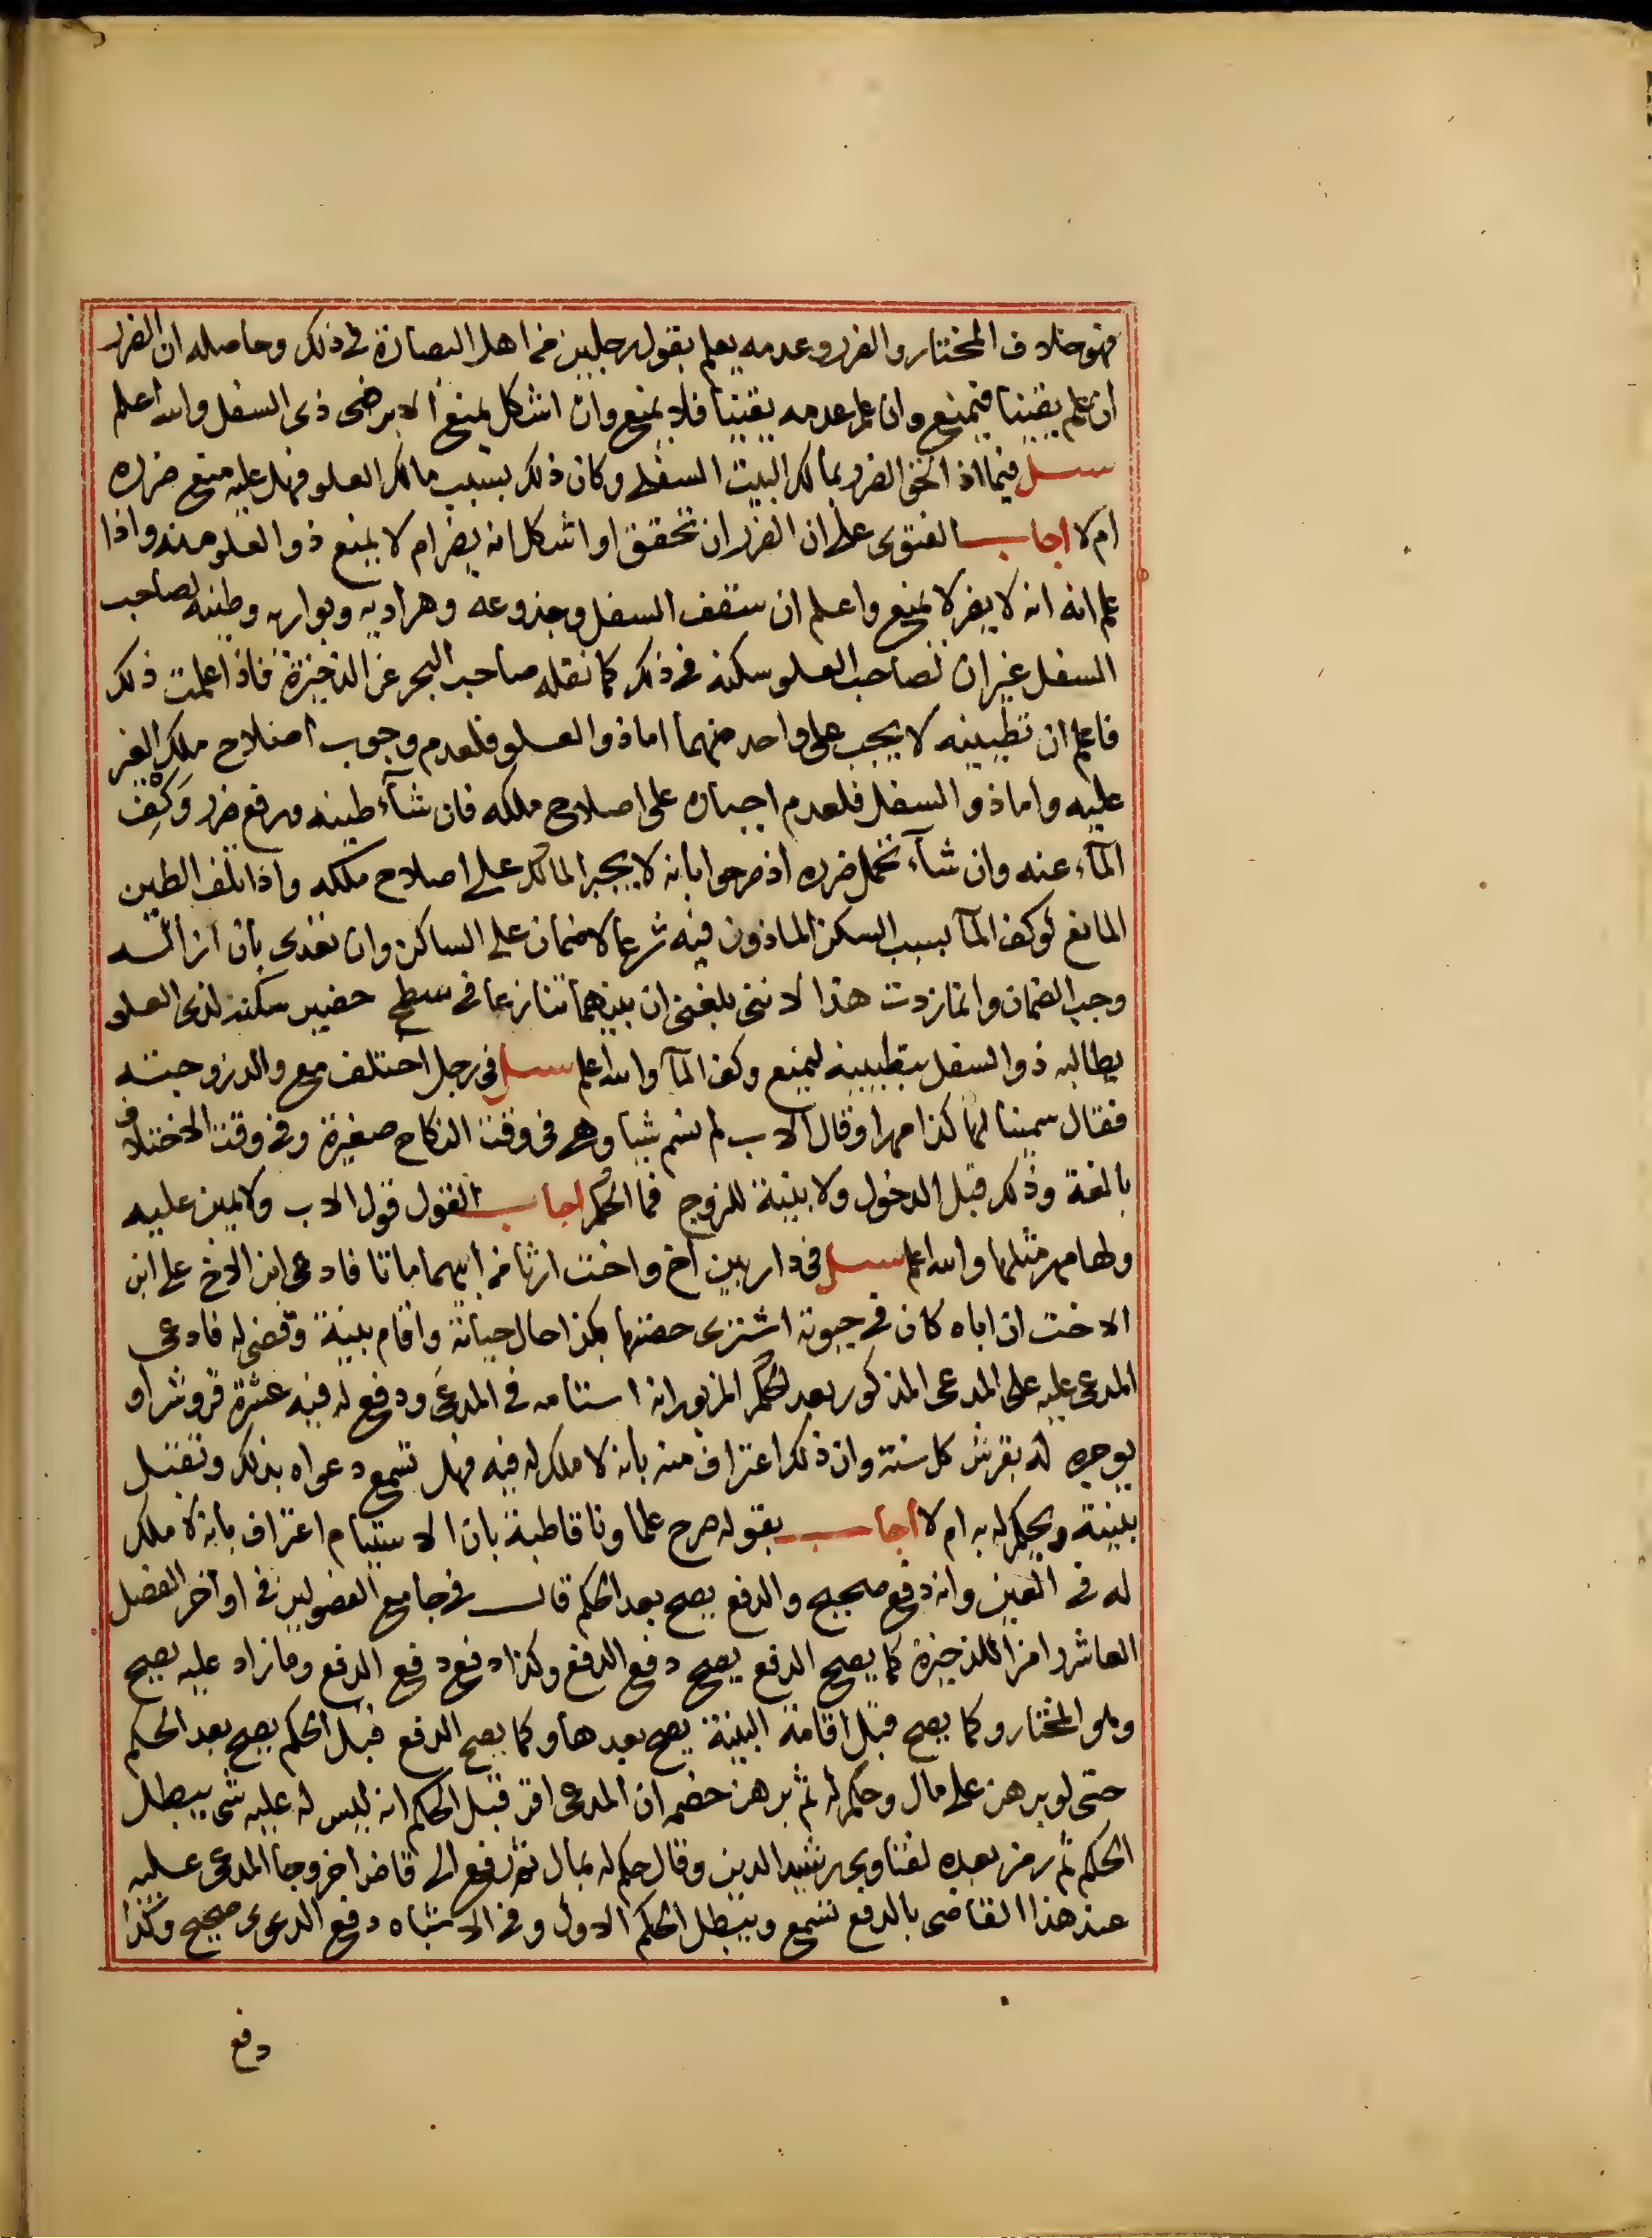 فهو خلاف المختار والضرر وعدمه يعلم بقول رجلين من اهل البصارة في ذلك وحاصله ان الضرر
ان علم يقينا فيمنع وان علم عدمه يقينا فلا يمنع وان اشكل يمنع الا برضى ذى السفل والله اعلم
سئل فيما اذا لحق الضرر بمالك البيت السفلى وكان ذلك بسبب مالك العلو فهل عليه منع ضرره
ام لا اجاب الفتوى على ان الضرر ان تحقق او اشكل انه يضر ام لا يمنع ذو العلو منه واذا
علم انه انه لا يضر لا يمنع واعلم ان سقف السفل وجذوعه وهراديه وبواريه وطينه لصاحب
السفل غير ان لصاحب العلو سكنه في ذلك كما نقله صاحب البحر عن الذخيرة فاذا علمت ذلك
فاعلم ان تطيينه لا يجب على واحد منهما اما ذو العلو فلعدم وجوب اصلاح ملك الغير
عليه واما ذو السفل فلعدم اجباره على اصلاح ملكه فان شآء طينه ورفع ضرر وَكْفِ
المآء عنه وان شآء تحمل ضرره اذ صرحوا بانه لا يجبر المالك على اصلاح ملكه واذا تلف الطين
المانع لوكف المآ بسبب السكن الماذون فيه شرعا لا ضمان على الساكن وان تعدى بان ازاله
وجب الضمان وانما زدت هذا لانني بلغني ان بينهما تنازعا في سطح حضير سكنه لذى العلو
يطالبه ذو السفل بتطيينه ليمنع وكف المآ والله اعلم سئل في رجل اختلف مع والد زوجته
فقال سمينا لها كذا مهرا وقال الاب لم نسم شيا وهى فى وقت النكاح صغيرة وفى وقت الاختلاف
بالغة وذلك قبل الدخول ولا بينة للزوج فما الحكم اجاب القول قول الاب ولا يمين عليه
ولها مهر مثلها والله اعلم سئل في دار بين اخ واخت ارثا من ابيهما ماتا فادعى ابن الاخ على ابن
الاخت ان اباه كان في حيوته اشترى حصتها بكذا حال حياته واقام بينة وقضى له فادعى
المدعى عليه على المدعى المذكور بعد الحكم المزبور انه استامه في المدعى ودفع له فيه عشرة قروش او
يوجره له بقرش كل سنة وان ذلك اعتراف منه بانه لا ملك له فيه فهل تسمع دعواه بذلك وتقبل
بينته ويحكم له به ام لا اجاب بقوله صرح علماونا قاطبة بان الاستيام اعتراف بانه لا ملك
له في العين وانه دفع صحيح والدفع يصح بعد الحكم قال في جامع الفصولين في اواخر الفصل
العاشر رامزا للذخيرة كما يصح الدفع يصح دفع الدفع وكذا دفع دفع الدفع وما زاد عليه يصح
وهو المختار وكما يصح قبل اقامة البينة يصح بعدها وكما يصح الدفع قبل الحكم يصح بعد الحكم
حتى لو برهن على مال وحكم له ثم برهن خصمه ان المدعى اقر قبل الحكم انه ليس له عليه شى يبطل
الحكم ثم رمز بعده لفتاوى رشيد الدين وقال حكم له بمال ثم رفع الى قاض اخر وجا المدعى عليه
عند هذا القاضى بالدفع تسمع ويبطل الحكم الاول وفى الاشباه دفع الدعوى صحيح وكذا
دفع